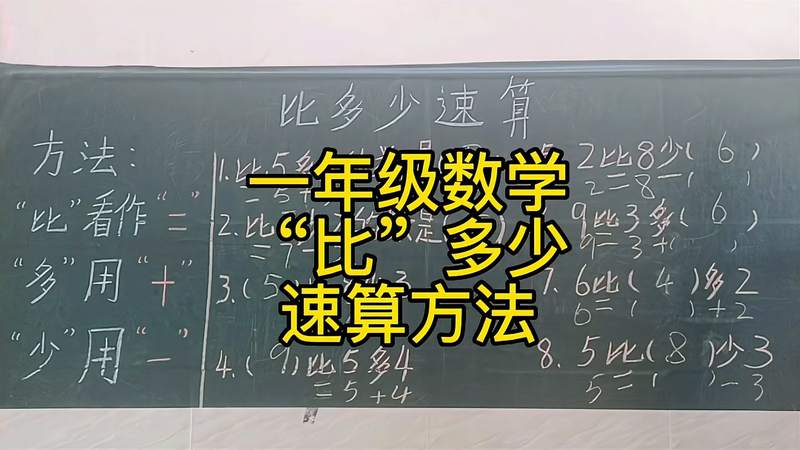 比多少速算
方法：
“比”看作“=”
“多”用“+”
“少”用“-”
一年级数学
“比”多少
速算方法
1.比5多
=5+
2.比
是
3.(5
4.(9)比5多4
=5+4
2比8少(6)
2=8-( )
9比3多(6)
9=3+( )
7. 6比(4)多2
6=( )+2
8. 5比(8)少3
5=( )-3